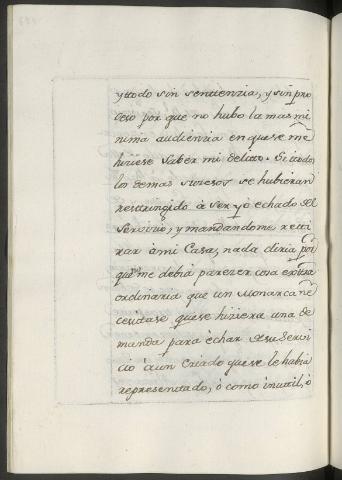 y todo sin sentenzia, y sin pro
ceso por que no hubo la mas mi
nima audienzia en que se me
hiziese saber mi delito. Si todos
los demas sucesos se hubieran
resttringido à ser yo echado del
servicio, y mandandome retti
rar à mi Casa, nada diria por
que no me debia parezer cosa exttra
ordinaria que un Monarca ne
cesitase que se hiziera una de
manda para echar de su servi
cio à un Criado que se le habia
representado, ò como inuttil, ò